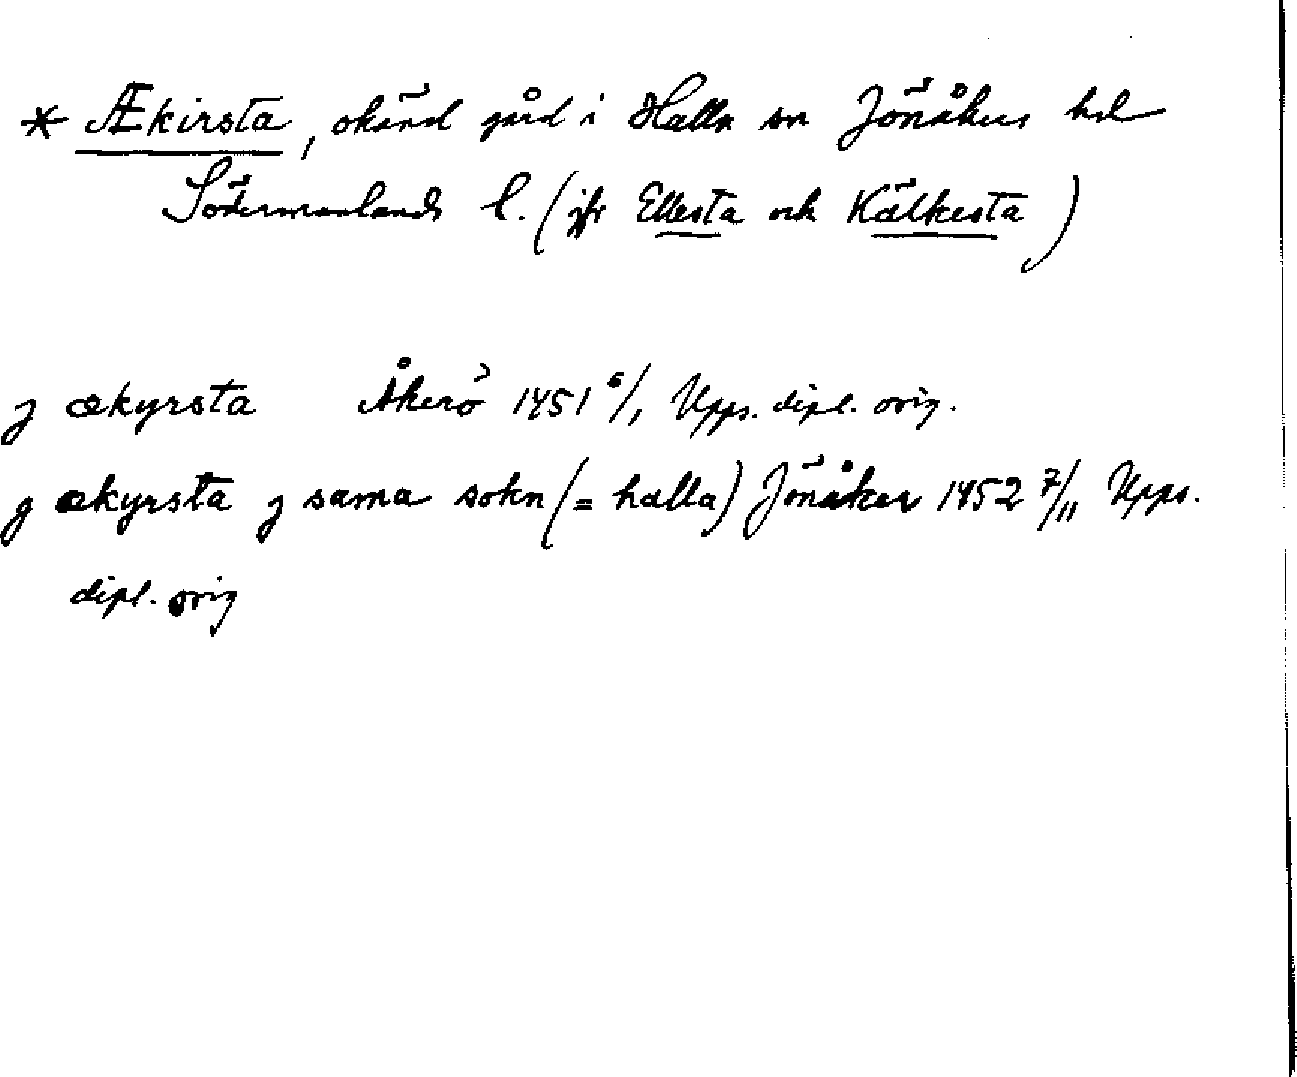 * Ækirsta, okänd gård i Halla sn Jönåkers hd
Södermanlands l. (jfr Ellesta och Kälkesta)
j ækyrsta Åkerö 1451 6/1 Upps. dipl. orig.
j ækyrsta j sama sokn (= halla) Jönåker 1452 7/11 Upps.
dipl. orig